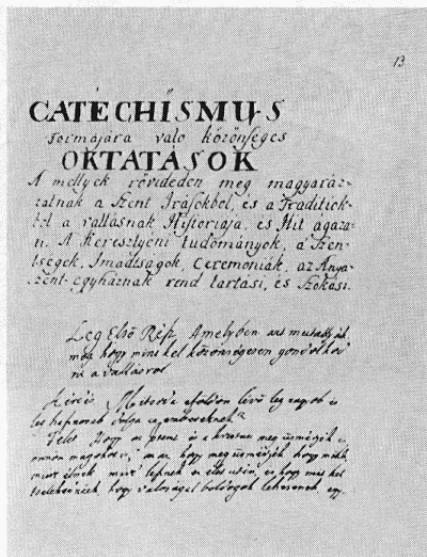 13
CATECHISMUS
formájára való közönséges
OKTATÁSOK
A mellyek rövideden meg magyaráz-
zatnak a Szent Irásokból, és a Traditiok-
ból a vallásnak Historiája, és Hit ágaza-
A Keresztyeni tudományok, a Szen-
tségek, Imádságok, Ceremoniák, az Anya-
szent-egyháznak rend tartási, és Szokási.
Leg Első Rész Amelyben azt mutattyák
meg hogy mint kel közönségesen gondolkod
ni a vallásról
Kérdés földön lévő leg nagyob és
leg dolga az embereknek?
Felel Hogy az Istent és a meg üsmérjék
magokat, meg üsmérjék, hogy mitől
élnek az élet után, és hogy mit kel
hogy valósággal boldogok lehessenek